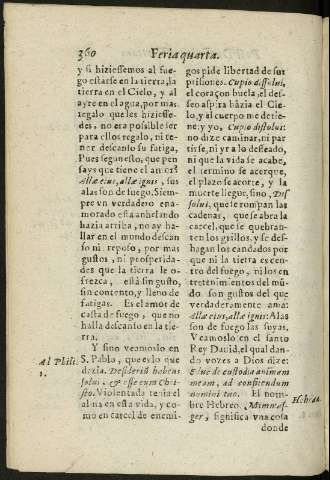 360
Feria quarta.
y si hiziessemos al fue-
go estarse en la tierra, la
tierra en el Cielo, y al
ayre en el agua, por mas
regalo que les hiziesse-
des, no era possible ser
para ellos regalo, ni te-
ner descanso su fatiga.
Pues segun esto, que pen
says que tiene el
Allæ eius, allæ ignis, sus
alas son de fuego. Siem-
pre vn verdadero ena-
morado està anhelando
hazia arriba, no ay ha-
llar en el mundo descan
so ni reposo, por mas
gustos, ni prosperida-
des que la tierra le o-
frezca, està sin gusto,
sin contento, y lleno de
fatigas. Es el amor de
casta de fuego, que no
halla descanso en la tie-
rra.
Y sino veamoslo en
S. Pablo, que es lo que
dezia. Desideriũ habens
solui, & esse cum Chri-
sto. Violentada tenia el
alma en esta vida, y co-
mo en carcel de enemi-
Al Phili.
1.
gos pide libertad de sus
prisiones. Cupio dissolui,
el coraçon buela, el des-
seo aspira hàzia el Cie-
lo, y al cuerpo me detie-
ne, y yo, Cupio dissolui:
no dize caminar, ni par
tirse, ni yr a lo desseado,
ni que la vida se acabe,
el termino se acerque,
el plazo se acorte, y la
muerte llegue, sino, Dis
solui, que le rompan las
cadenas, que se abra la
carcel, que se quebran-
ten los grillos, y se des-
hagan los candados por
que ni la tierra es cen-
tro del fuego, ni los en
tretenimientos del mũ-
do son gustos del que
verdaderamente ama:
Allæ eius, allæ ignis: Alas
son de fuego las suyas.
Veamoslo en el santo
Rey Dauid, el qual dan-
do vozes a Dios dize:
Educ de custodia animam
meam, ad confitendum
nomini tuo. El nom-
bre Hebreo, Mimmas-
ger, significa vna cosa
Hebrae.
donde